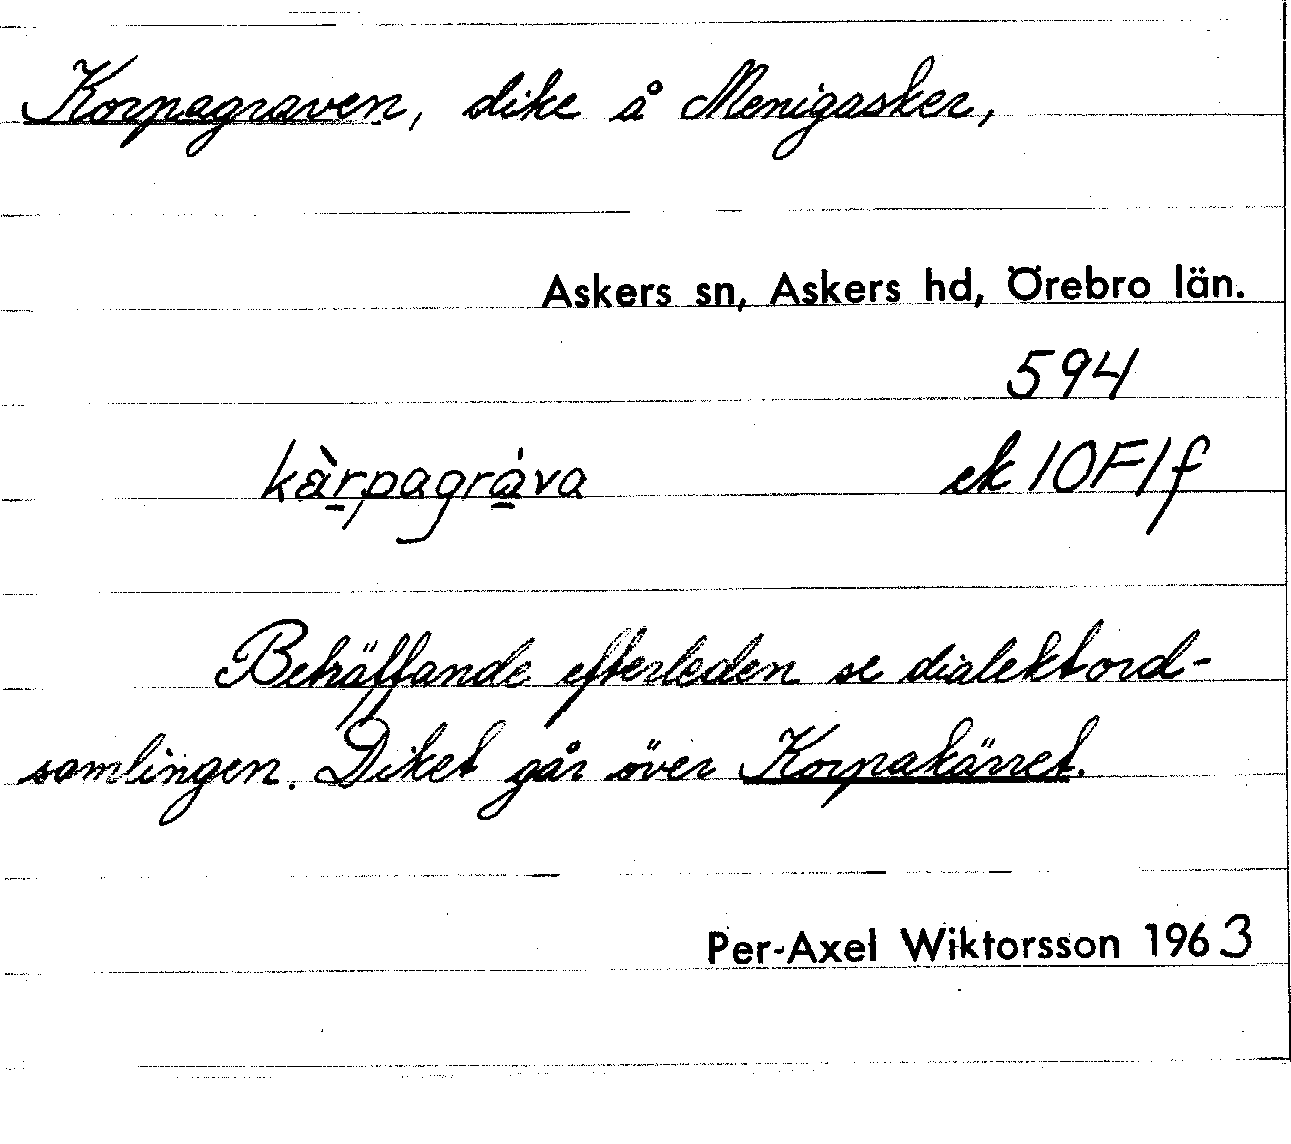 Korpagraven, dike å Menigasker,
Askers sn, Askers hd, Örebro län.
594
kàrpagráva ek 10F1f
Beträffande efterleden se dialektord-
samlingen. Diket går över Korpakärret.
Per-Axel Wiktorsson 1963